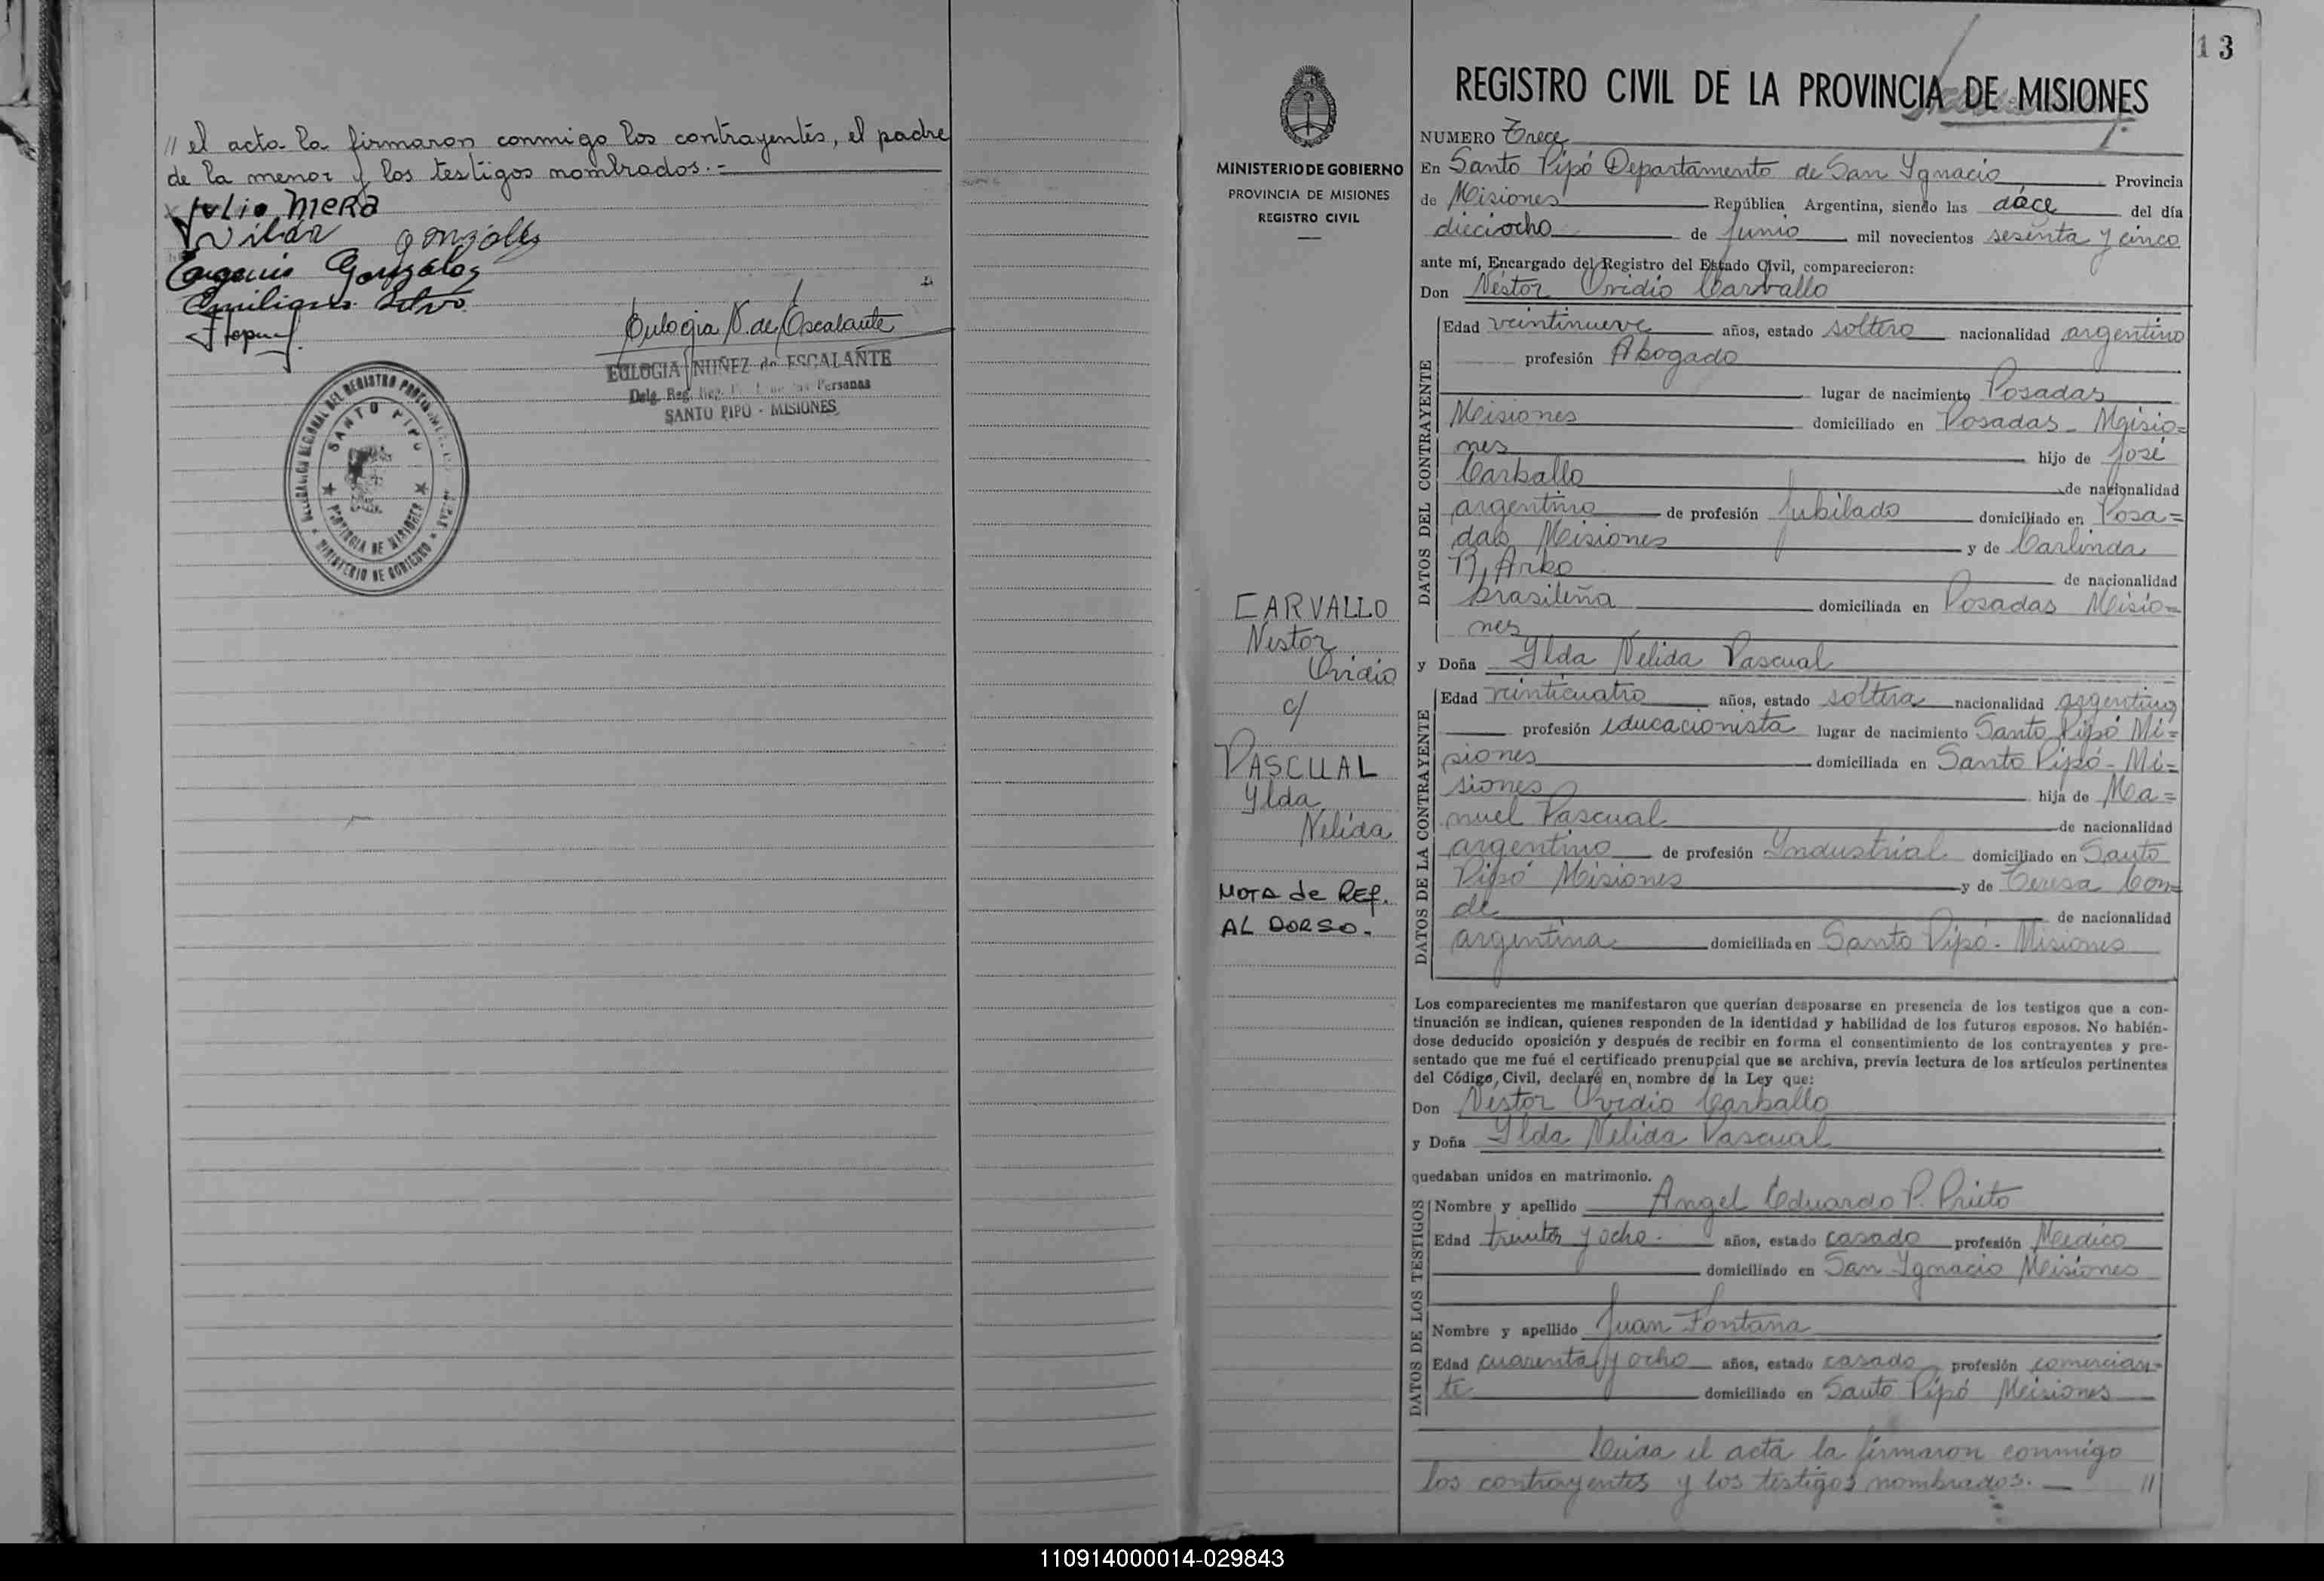 // el acta la firmaron conmigo los contrayentes, el padre
de la menor y los testigos nombrados.=
Julio Mera
Vilda Gonzalez
Eugenio Gonzalez
Emiliano
Eulogia N. de Escalante
EULOGIA NUÑEZ de ESCALANTE
Delg. Reg. de las Personas
SANTO PIPO - MISIONES
DELEGACION REGIONAL DEL REGISTRO PROVINCIAL
SANTO PIPO
PROVINCIA DE MISIONES
MINISTERIO DE GOBIERNO
13
MINISTERIO DE GOBIERNO
PROVINCIA DE MISIONES
REGISTRO CIVIL
CARVALLO
Nestor
Ovidio
c/
PASCUAL
Ylda
Nelida
NOTA de REF.
AL DORSO.-
REGISTRO CIVIL DE LA PROVINCIA DE MISIONES
NUMERO Trece
En Santo Pipó Departamento de San Ygnacio Provincia
de Misiones República Argentina, siendo las doce del día
dieciocho de Junio mil novecientos sesenta y cinco
ante mí, Encargado del Registro del Estado Civil, comparecieron:
Don Néstor Ovidio Carballo
DATOS DEL CONTRAYENTE
Edad veintinueve años, estado soltero nacionalidad argentino
profesión Abogado
lugar de nacimiento Posadas
Misiones domiciliado en Posadas - Misio=
nes hijo de José
Carballo de nacionalidad
argentino de profesión Jubilado domiciliado en Posa=
das Misiones y de Carlinda
de nacionalidad
brasileña domiciliada en Posadas Misio=
nes
y Doña Ylda Nelida Pascual
DATOS DE LA CONTRAYENTE
Edad veinticuatro años, estado soltera nacionalidad argentina
profesión educacionista lugar de nacimiento Santo Pipó Mi=
siones domiciliada en Santo Pipó - Mi=
siones hija de Ma=
nuel Pascual de nacionalidad
argentino de profesión Industrial domiciliado en Santo
Pipó Misiones y de Teresa Con=
de de nacionalidad
argentina domiciliada en Santo Pipó - Misiones
Los comparecientes me manifestaron que querían desposarse en presencia de los testigos que a con-
tinuación se indican, quienes responden de la identidad y habilidad de los futuros esposos. No habién-
dose deducido oposición y después de recibir en forma el consentimiento de los contrayentes y pre-
sentado que me fué el certificado prenupcial que se archiva, previa lectura de los artículos pertinentes
del Código, Civil, declaré en nombre de la Ley que:
Don Nestor Ovidio Carballo
y Doña Ylda Nelida Pascual
quedaban unidos en matrimonio.
DATOS DE LOS TESTIGOS
Nombre y apellido Angel Eduardo P. Prieto
Edad treinta y ocho.- años, estado casado profesión Medico
domiciliado en San Ygnacio Misiones
Nombre y apellido Juan Fontana
Edad cuarenta y ocho años, estado casado profesión comercian=
te domiciliado en Santo Pipó Misiones
Leida el acta la firmaron conmigo
los contrayentes y los testigos nombrados. - //
110914000014-029843